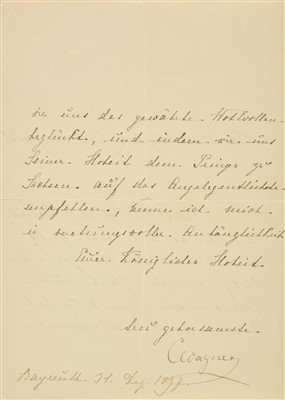 die uns das gewährte Wohlwollen
beglückt, und indem wir uns
Seiner Hoheit dem Prinzen zu
Sachsen auf das Angelegentlichste
empfehlen, nenne ich mich
in verehrungsvoller Anhänglichkeit
Eurer Königlichen Hoheit
treu gehorsamste
CWagner
Bayreuth 31. Dez. 18